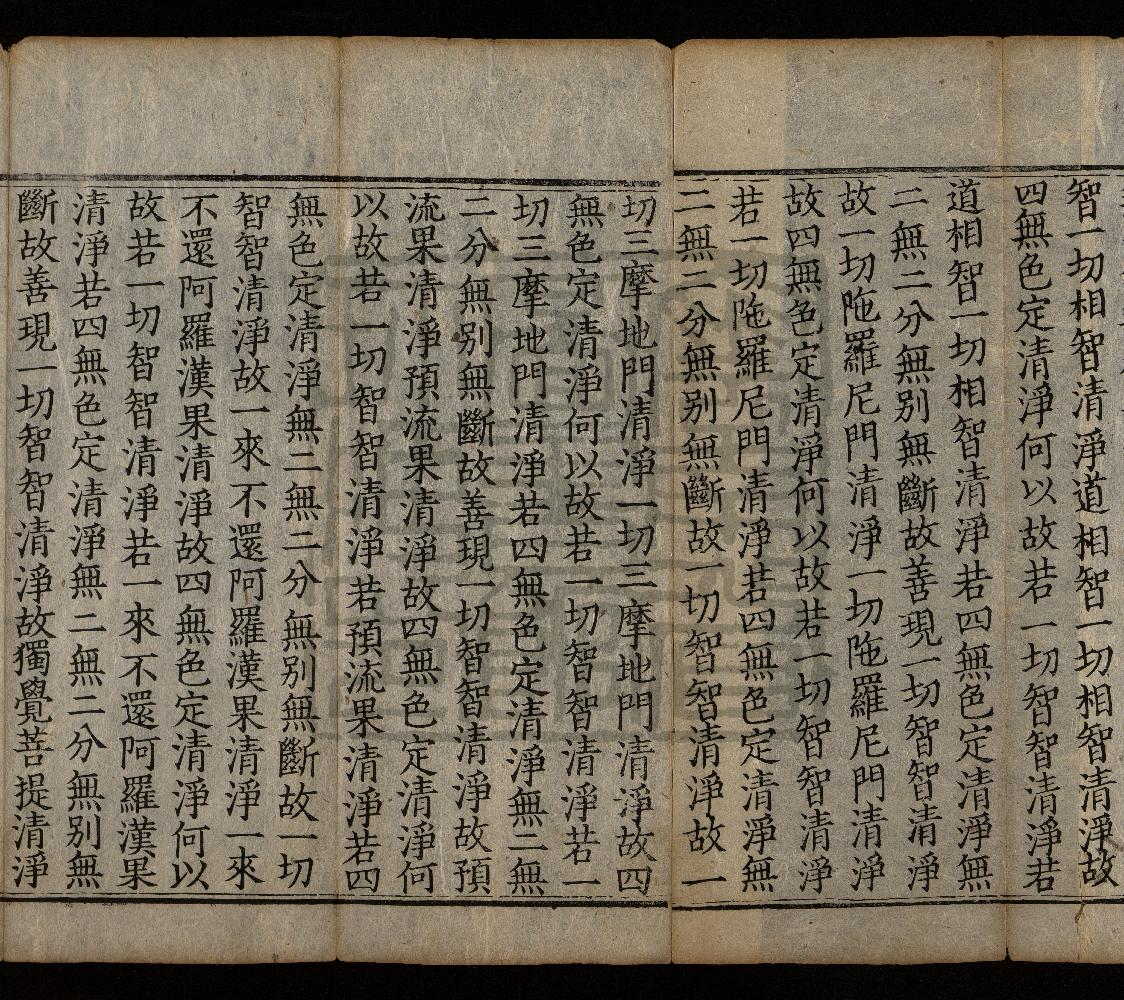 智一切相智清淨道相智一切相智清淨故
四無色定清淨何以故若一切智智清淨若
道相智一切相智清淨若四無色定清淨無
二無二分無別無斷故善現一切智智清淨
故一切陁羅尼門清淨一切陁羅尼門清淨
故四無色定清淨何以故若一切智智清淨
若一切陁羅尼門清淨若四無色定清淨無
二無二分無別無斷故一切智智清淨故一
切三摩地門清淨一切三摩地門清淨故四
無色定清淨何以故若一切智智清淨若一
切三摩地門清淨若四無色定清淨無二無
二分無別無斷故善現一切智智清淨故預
流果清淨預流果清淨故四無色定清淨何
以故若一切智智清淨若預流果清淨若四
無色定清淨無二無二分無別無斷故一切
智智清淨故一來不還阿羅漢果清淨一來
不還阿羅漢果清淨故四無色定清淨何以
故若一切智智清淨若一來不還阿羅漢果
清淨若四無色定清淨無二無二分無別無
斷故善現一切智智清淨故獨覺菩提清淨